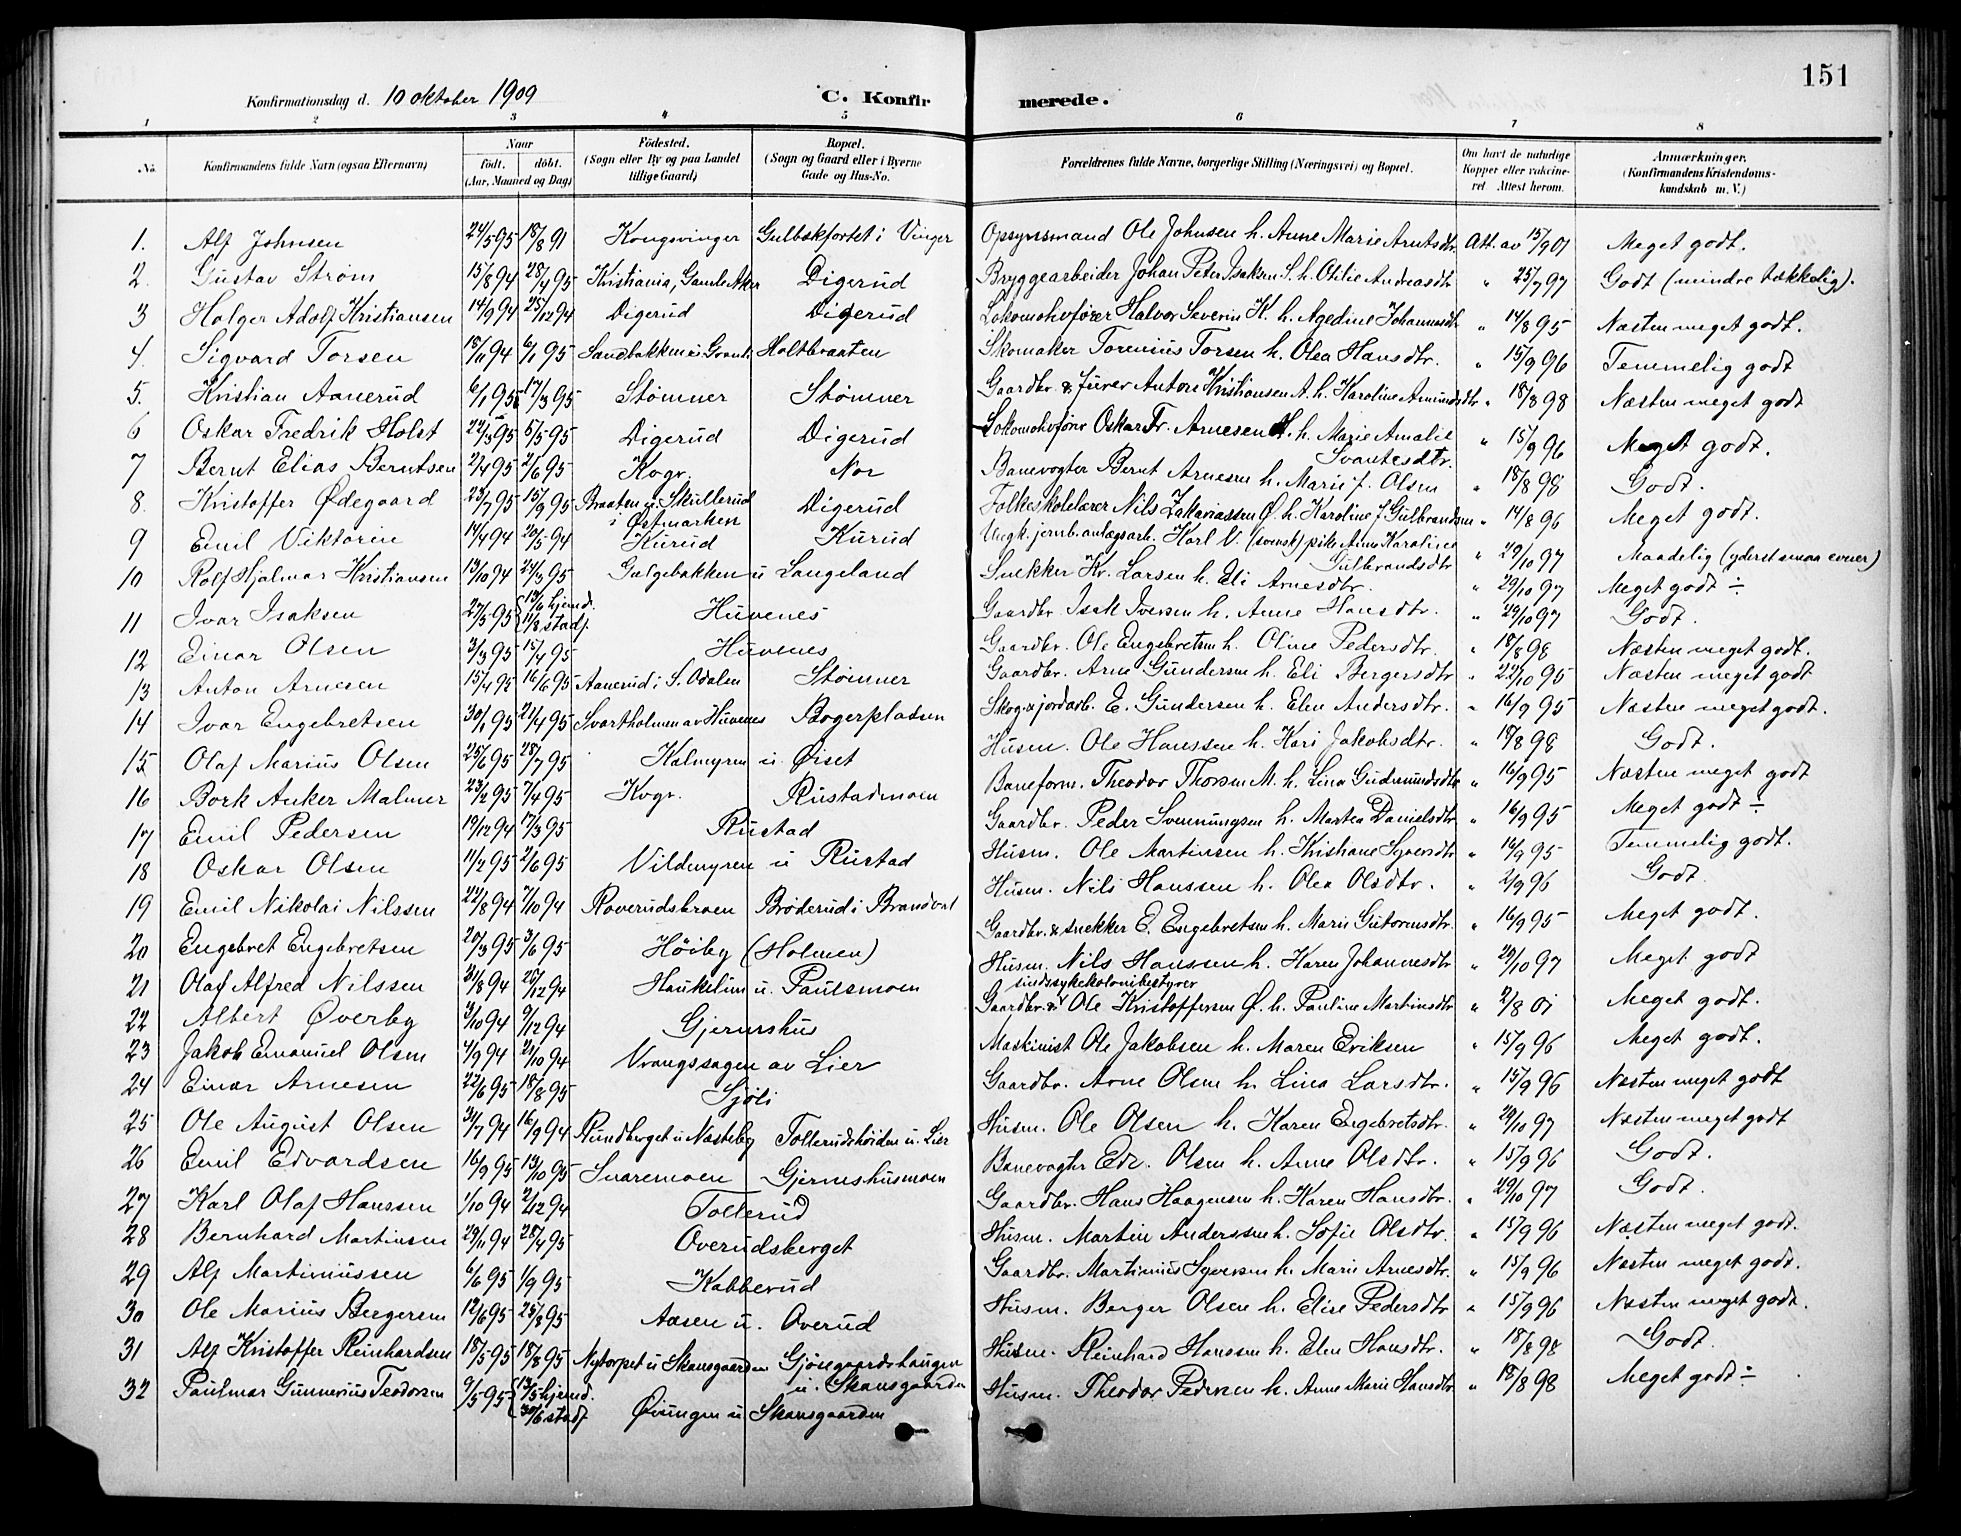 151
Konfirmationsdag d. 10 oktober 1909 C. Konfirmerede.
1 2 3 4 5 6 7 8
No. Konfirmandens fulde Navn (ogsaa Efternavn) Naar født. døbt. (Aar, Maaned og Dag) Fødested. (Sogn eller By og paa Landet tillige Gaard) Bopæl. (Sogn og Gaard eller i Byerne Gade og Hus-No. Forældrenes fulde Navne, borgerlige Stilling (Næringsvei) og Bopæl. Om havt de naturlige Kopper eller vakcineret. Attest herom. Anmærkninger. (Konfirmandens Kristendomskundskab m. V.)
1. Alf Johnsen 24/5 95 18/8 91 Kongsvinger Gulbækfortet i Vinger Opsynsmand Ole Johnsen h. Anne Marie Arntsdtr. Att. av 15/9 01 Meget godt.
2. Gustav Strøm 15/8 94 28/4 95 Kristiania, Gamle Aker Digerud Bryggearbeider Johan Peter Isaksen S. h. Otilie Andreasdtr " 25/7 97 Godt (mindre tækkelig).
3 Holger Adolf Kristiansen 14/9 94 25/12 94 Digerud Digerud Lokomotivfører Halvor Severin K. h. Agedine Johannesdtr " 14/8 95 Næsten meget godt.
4. Sigvard Torsen 18/11 94 6/1 95 Sandbakken i Grani. Holtbraaten Skomaker Torenius Torsen h. Olea Hansdtr. " 15/9 96 Temmelig godt
5. Kristian Aanerud 6/1 95 17/3 95 Stømner Stømner Gaardbr. & furer Anton Kristiansen A. h. Karoline Amundsdtr " 18/8 98 Næsten meget godt
6 Oskar Fredrik Holst 22/3 95 5/5 95 Digerud Digerud Lokomotivfører Oskar Fr. Arnesen H. h. Marie Amalie Svantesdtr. " 15/9 96 Meget godt.
7 Bernt Elias Berntsen 22/4 95 2/6 95 Kogr. Nor Banevogter Bernt Arnesen h. Marie f. Olsen " 18/8 98 Godt.
8. Kristoffer Ødegaard 23/7 95 15/9 95 Braaten u. Skullerud i Østmarken Digerud Folkeskolelærer Nils Zakariassen Ø. h. Karoline f. Gulbrandsen " 14/8 96 Meget godt.
9 Emil Viktorin 14/4 94 20/5 94 Kurud Kurud Ungk. jernb.anlægsarb. Karl V. (svensk) pike Anne Karoline Gulbrandsdtr " 29/10 97 Maadelig (yderst smaa evner)
10 Rolf Hjalmar Kristiansen 13/10 94 24/3 95 Galgebakken u Langeland Snekker Kr. Larsen h. Eli Arnesdtr. " 29/10 97 Meget godt ÷
11 Ivar Isaksen 27/5 95 {13/6 hjemd. 11/8 stadf. Huvenes Gaardbr. Isak Iversen h. Anne Hansdtr. " 29/10 97 Godt.
12 Einar Olsen 3/3 95 15/4 95 Huvenes Gaardbr. Ole Engebretsen h. Oline Pedersdtr. " 18/8 98 Næsten meget godt.
13 Anton Arnesen 15/4 95 16/6 95 Aanerud i S. Odalen Stømner Gaardbr. Arne Gundersen h. Eli Bergersdtr " 22/10 95 Næsten meget godt
14 Ivar Engebretsen 30/1 95 21/4 95 Svartholmen av Huvenes Bogerpladsen Skog & jordarb. E. Gundersen h. Elen Andersdtr. " 16/9 95 Næsten meget godt.
15 Olaf Marius Olsen 25/6 95 28/7 95 Kalmyren u. Øiset Husm. Ole Hanssen h. Kari Jakobsdtr. " 18/8 98 Godt.
16 Bork Anker Malmer 23/2 95 7/4 95 Kogr. Rustadmoen Baneform. Theodor Thorsen M. h. Lina Gudmundsdtr " 16/9 95 Næsten meget godt
17 Emil Pedersen 19/12 94 17/3 95 Rustad Gaardbr. Peder Svennungsen h. Martea Danielsdtr " 16/9 95 Meget godt ÷
18 Oskar Olsen 11/2 95 2/6 95 Vildmyren u Rustad Husm. Ole Martinsen h. Kristiane Syversdtr " 16/9 95 Temmelig godt.
19 Emil Nikolai Nilssen 22/8 94 7/10 94 Roverudsbroen Brøderud i Brandval Husm. Nils Hanssen h. Olea Olsdtr. " 2/9 96 Godt
20 Engebret Engebretsen 20/3 95 3/6 95 Høiby (Holmen) Gaardbr. & snekker E. Engebretsen h. Marie Gutormsdtr. " 16/9 95 Meget godt.
21 Olaf Alfred Nilssen 31/8 94 26/12 94 Haukelien u. Paulsmoen Husm. Nils Hanssen h. Karen Johannesdtr " 29/10 97 Meget godt
22 Albert Øverby 3/10 94 9/12 94 Gjermshus Gaardbr. & sindssykekolonibestyrer Ole Kristoffersen Ø. h. Pauline Martinsdtr " 2/8 01 Meget godt.
23 Jakob Emanuel Olsen 4/9 94 21/10 94 Vrangssagen av Lier Maskinist Ole Jakobsen h. Maren Eriksen " 15/9 96 Meget godt.
24 Einar Arnesen 22/6 95 18/8 95 Sjøli Gaardbr. Arne Olsen h. Lina Larsdtr. " 15/9 96 Næsten meget godt
25 Ole August Olsen 31/7 94 16/9 94 Rundberget u Næsteby Tollerudshøiden u. Lier Husm. Ole Olsen h. Karen Engebretsdtr. " 29/10 97 Næsten meget godt
26 Emil Edvardsen 16/9 95 13/10 95 Snaremoen Gjermshusmoen Banevogter Edv. Olsen h. Anne Olsdtr. " 15/9 96 Godt.
27 Karl Olaf Hanssen 1/10 94 2/12 94 Tollerud Gaardbr. Hans Haagensen h. Karen Hansdtr. " 29/10 97 Godt.
28 Bernhard Martinsen 29/11 94 28/4 95 Overudsberget Husm. Martin Anderssen h. Sofie Olsdtr. " 15/9 96 Næsten meget godt.
29 Alf Martiniussen 6/6 95 1/9 95 Kabberud Gaardbr. Martinius Syversen h. Marie Arnesdtr. " 15/9 96 Næsten meget godt.
30 Ole Marius Bergersen 12/6 95 25/8 95 Aasen u. Overud Husm. Berger Olsen h. Elise Pedersdtr " 15/9 96 Næsten meget godt.
31 Alf Kristoffer Reinhardsen 18/5 95 18/8 95 Nytorpet u Skansgaarden Gjøsegaardshaugen u. Skansgaarden Husm. Reinhard Hanssen h. Elen Hansdtr. " 18/8 98 Godt.
32 Paulmar Gunnerius Teodorsen 9/5 95 {13/5 hjemd. 30/6 stadf. Øiungen u Skansgaarden Husm. Theodor Pedersen h. Anne Marie Hansdtr " 18/8 98 Meget godt ÷